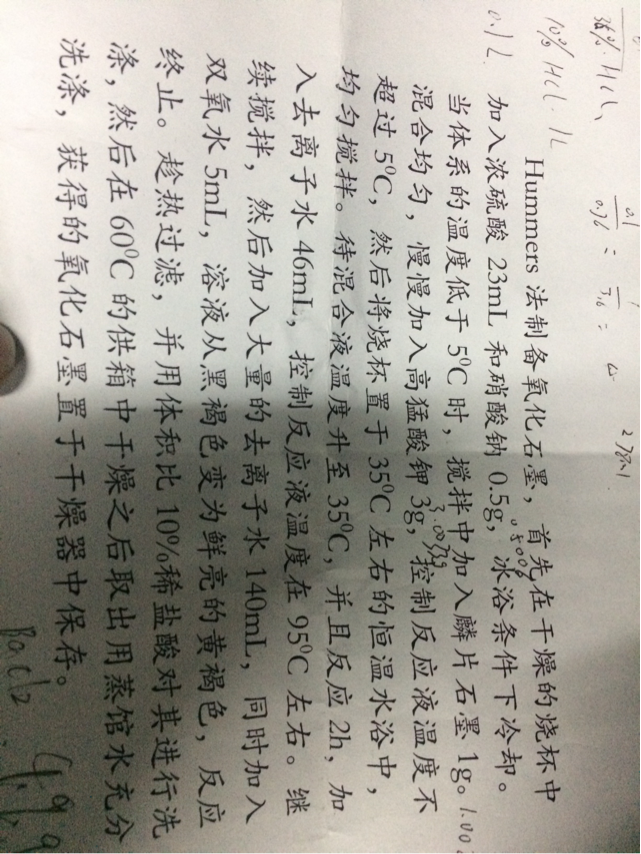 36% HCl
10% HCl 1L
0.1L
Hummers 法制备氧化石墨，首先在干燥的烧杯中
加入浓硫酸 23mL 和硝酸钠 0.5g，冰浴条件下冷却。
当体系的温度低于 5⁰C 时，搅拌中加入鳞片石墨 1g。
混合均匀，慢慢加入高猛酸钾 3g，控制反应液温度不
超过 5⁰C，然后将烧杯置于 35⁰C 左右的恒温水浴中，
均匀搅拌。待混合液温度升至 35⁰C，并且反应 2h，加
入去离子水 46mL，控制反应液温度在 95⁰C 左右。继
续搅拌，然后加入大量的去离子水 140mL，同时加入
双氧水 5mL，溶液从黑褐色变为鲜亮的黄褐色，反应
终止。趁热过滤，并用体积比 10%稀盐酸对其进行洗
涤，然后在 60⁰C 的供箱中干燥之后取出用蒸馆水充分
洗涤，获得的氧化石墨置于干燥器中保存。
Bacl2